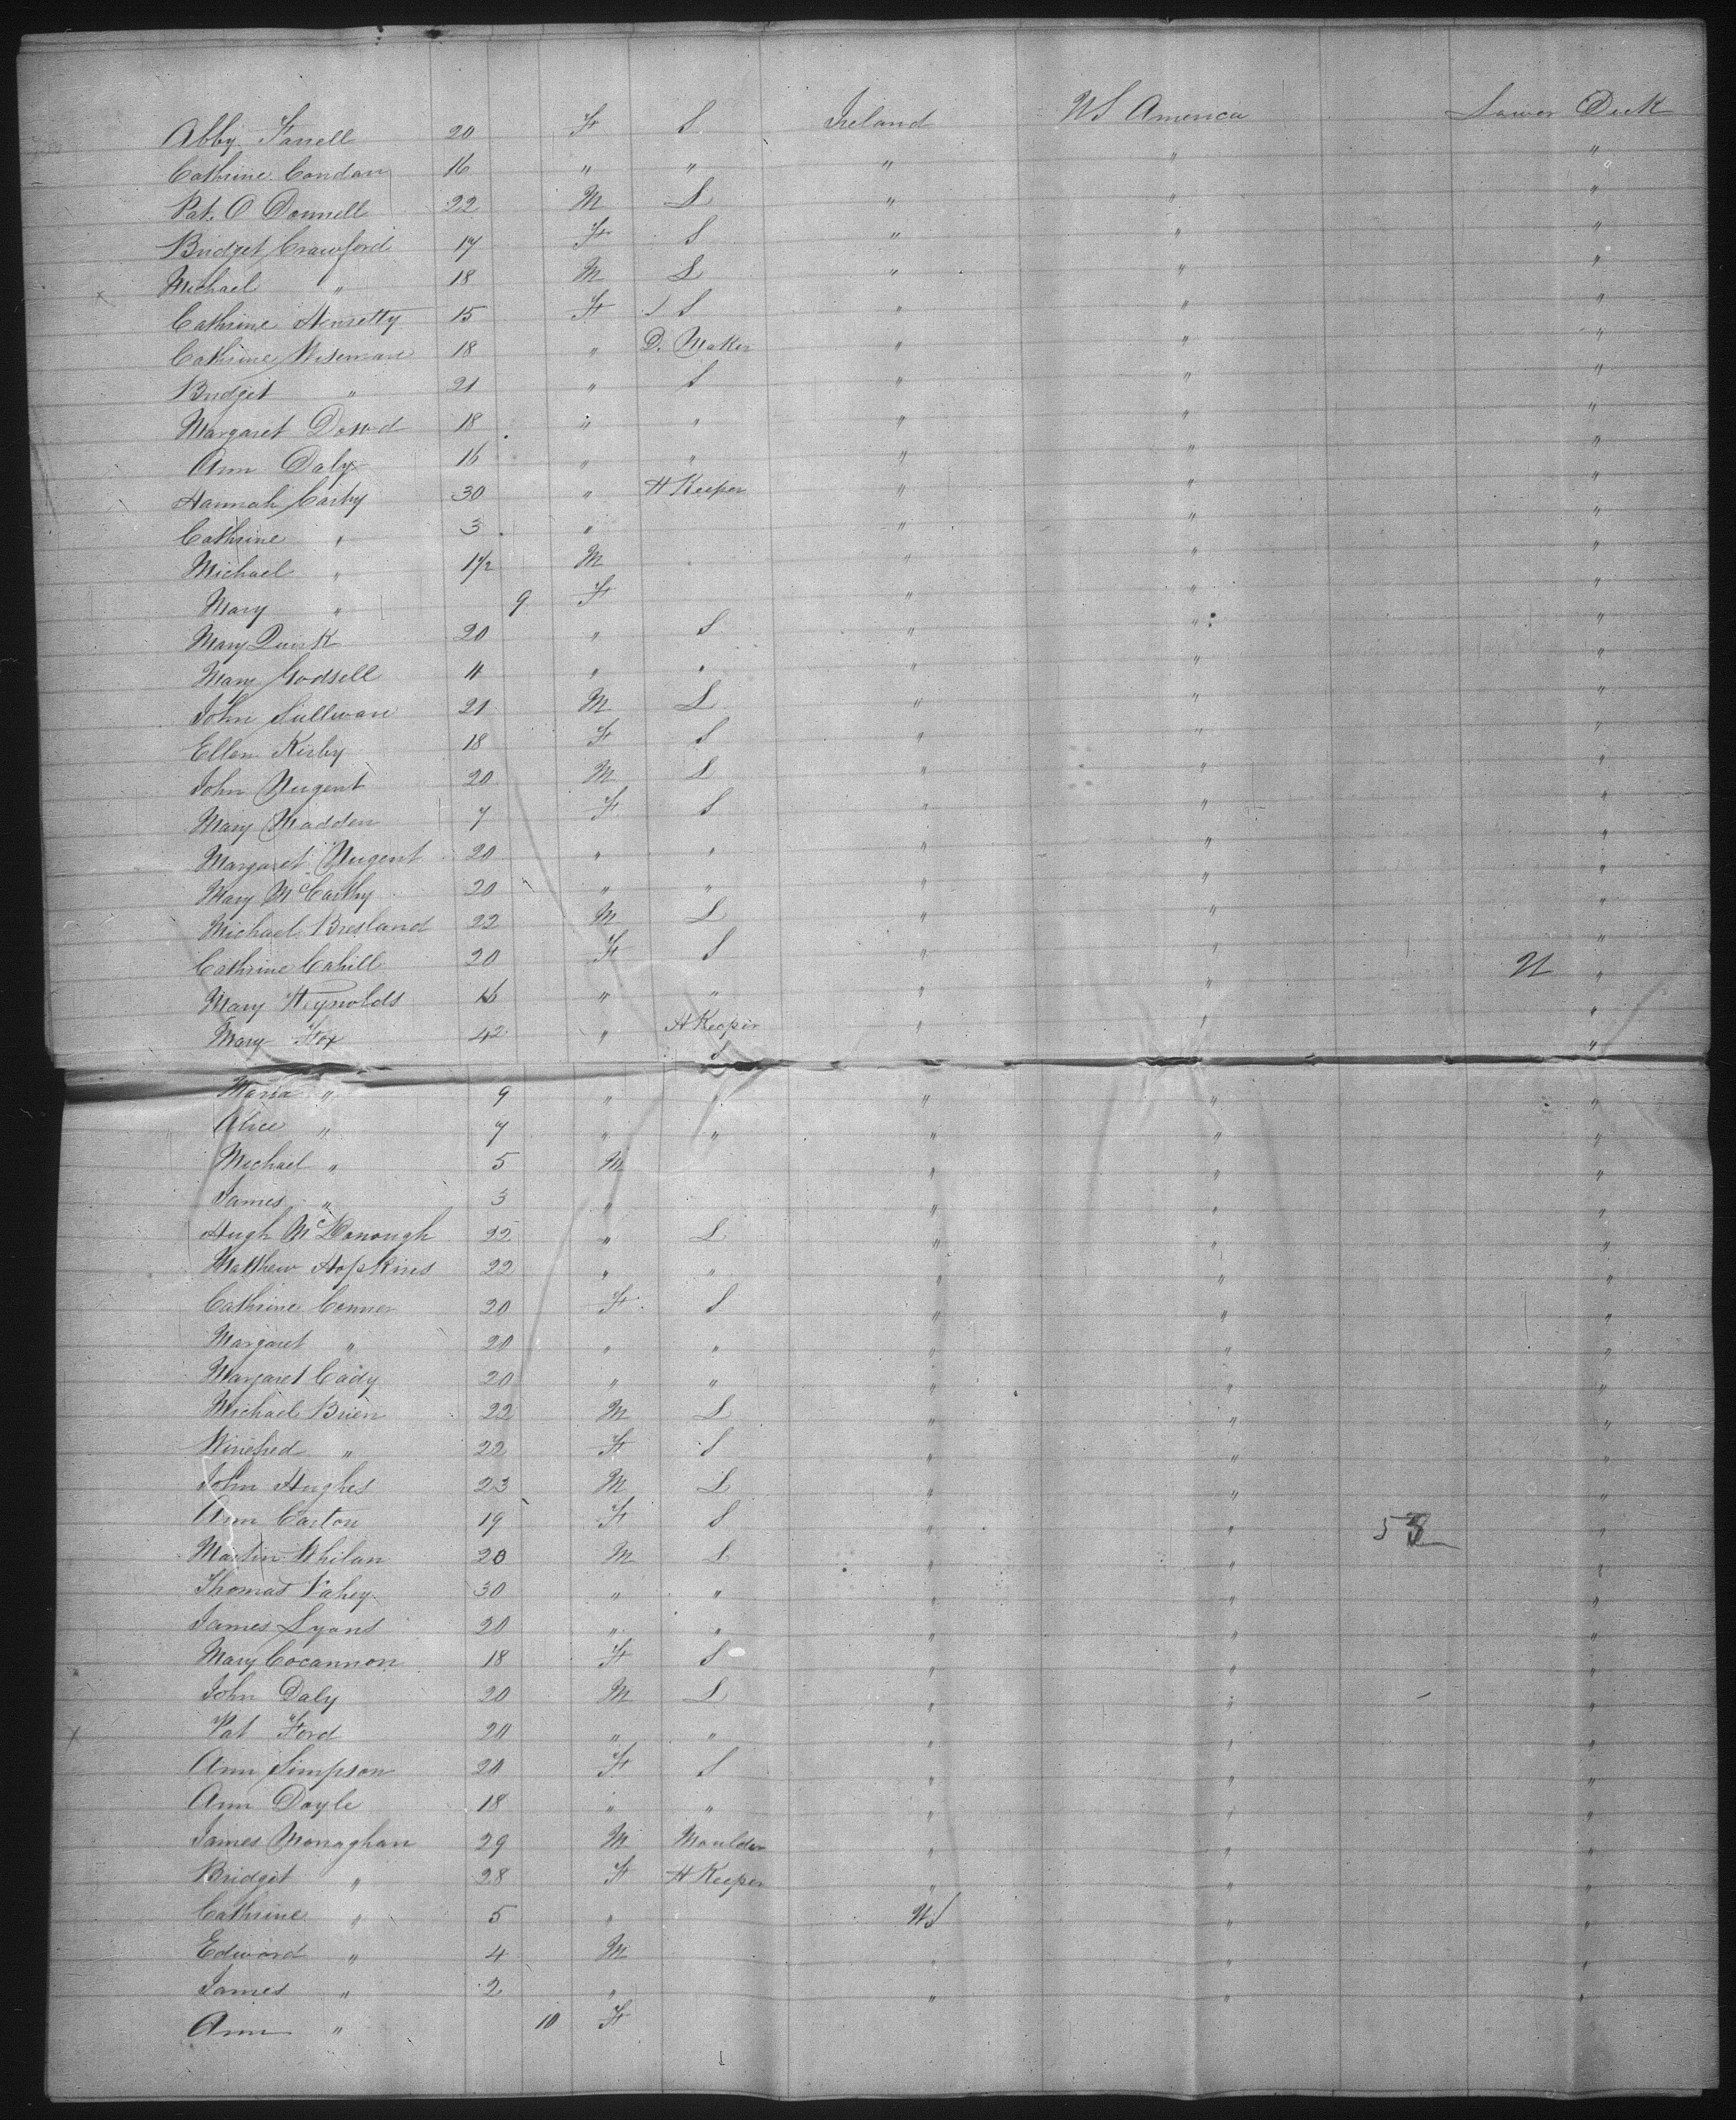 Abby Farrell 20 F S Ireland US America Lower Deck
Cathrine Condon 16 " " " " "
Pat. O Donnell 22 M L " " "
Bridget Crawford 17 F S " " "
Michael " 18 M L " " "
Cathrine Henretty 15 F S " " "
Cathrine Wiseman 18 " D. Maker " " "
Bridget " 21 " S " " "
Margaret Dowd 18 " " " " "
Ann Daly 16 " " " " "
Hannah Carty 30 " H Keeper " " "
Cathrine " 3 " " " "
Michael " 1 1/2 M " " "
Mary " 9 F " " "
Mary Quirk 20 " S " " "
Mary Godsell 4 " " " " "
John Sullivan 21 M L " " "
Ellen Kirby 18 F S " " "
John Nugent 20 M L " " "
Mary Madden 7 F S " " "
Margaret Nugent 20 " " " " "
Mary McCarthy 20 " " " " "
Michael Bresland 22 M L " " "
Cathrine Cahill 20 F S " " "
Mary Heynolds 16 " " " " "
Mary Fox 42 " H Keeper " " "
Maria " 9 " " " " "
Alice " 7 " " " " "
Michael " 5 M " " "
James " 3 " " " "
Hugh McDonough 22 " L " " "
Matthew Hopkins 22 " " " " "
Cathrine Conner 20 F S " " "
Margaret " 20 " " " " "
Margaret Cady 20 " " " " "
Michael Brien 22 M L " " "
Winefred " 22 F S " " "
John Hughes 23 M L " " "
Ann Carton 19 F S " " 53 "
Martin Whilan 20 M L " " "
Thomas Fahey 30 " " " " "
James Lyons 20 " " " " "
Mary Cocannon 18 F S " " "
John Daly 20 M L " " "
Pat Ford 20 " " " " "
Ann Simpson 20 F S " " "
Ann Doyle 18 " " " " "
James Monaghan 29 M Moulder " " "
Bridget " 28 F H Keeper " " "
Cathrine " 5 " US " "
Edward " 4 M " " "
James " 2 " " " "
Ann " 10 F